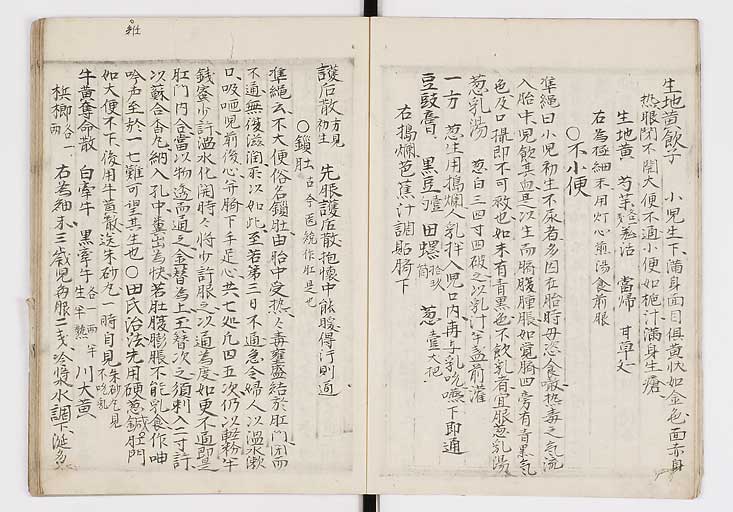 生地黄飲子　小児生下満身面目俱黄状如金色面赤身
熱眼閉不開大便不通小便如梔汁満身生瘡
生地黄　芍薬　羌活　當帰　甘草
右為極細末用灯心煎湯食前服
○不小便
準繩曰小児初生不尿者多因在胎時母恣食噉熱毒之気流
入胎中児飲其血是以生而臍腹腫脹如覚臍四旁有青黒気
色及口撮即不可救也如未有青黒色不飲乳者宜服葱乳湯
葱乳湯　葱白三四寸四破之以乳汁半盞煎灌
一方　葱生用搗爛人乳拌入児口内再与乳吮嚥下即通
豆豉膏　黒豆　田螺　葱
右搗爛芭蕉汁調貼臍下
護后散　先服護后散抱懐中能暖得行則通
○鎖肚
準繩云不大便俗名鎖肚由胎中受熱々毒壅盛結於肛門閉而
不通無復滋潤所以如此至若第三日不通急令婦人以温水漱
口吸咂児前後心并臍下手足心共七処凡四五次仍以軽粉半
銭蜜少許温水化開時々将少許服之以通為度如更不通即是
肛門内合當以物透而通之金簪為上玉簪次之須刺入二寸許
以蘇合香丸納入孔中糞出為快若肚腹膨脹不能乳食作呻
吟声至於一七難可望其生也○田氏治法先用硬葱鍼肛門
如大便不下後用牛黄散送朱砂丸一時自見
牛黄奪命散　白牽牛　黒牽牛　川大黄
檳榔　右為細末三歳児毎服二戔冷漿水調下涎多